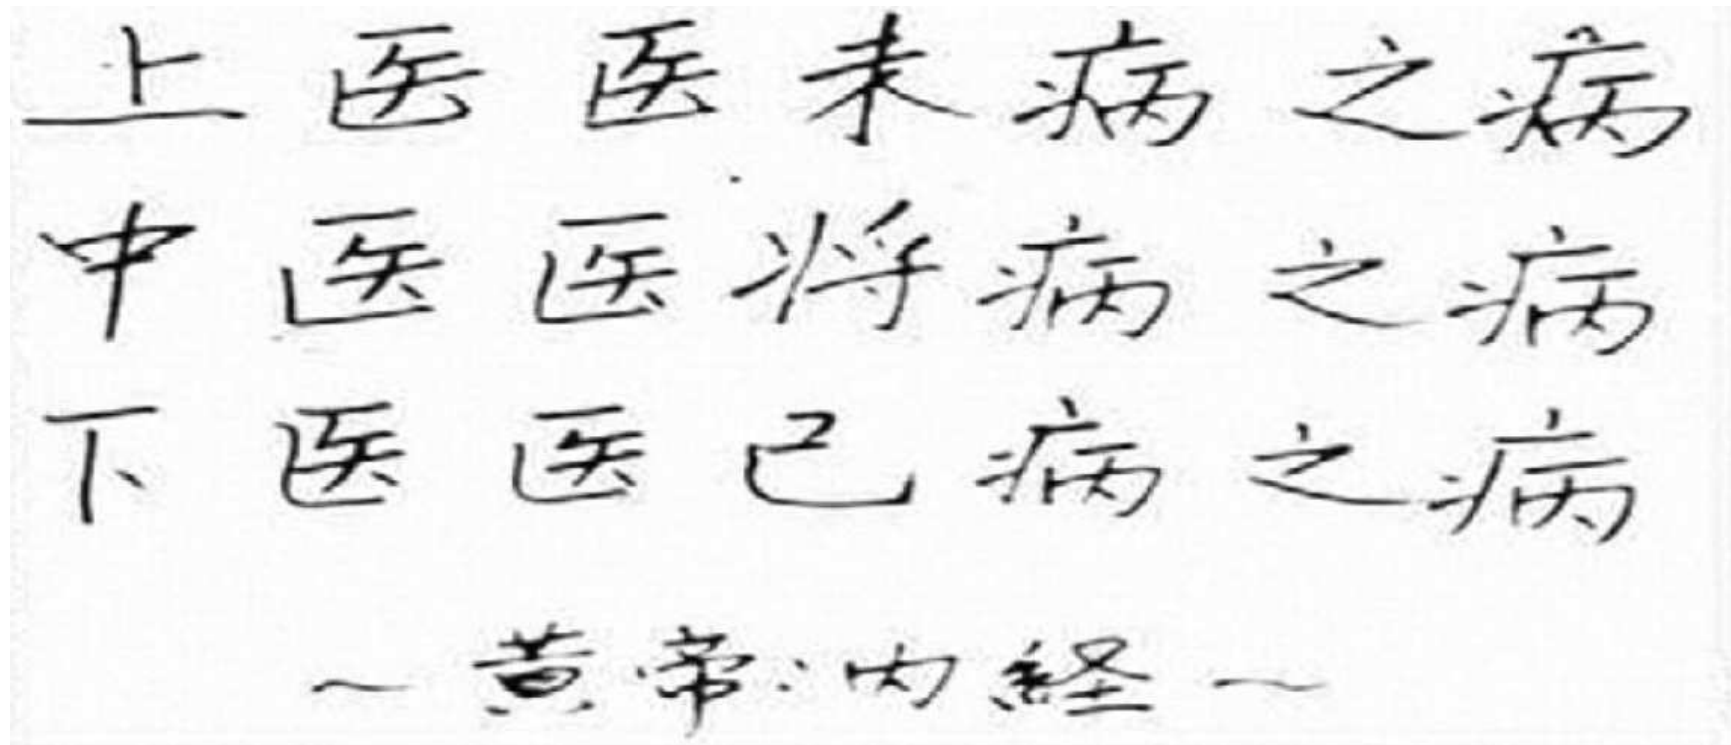 上医医未病之病
中医医将病之病
下医医已病之病
~黄帝:内経~